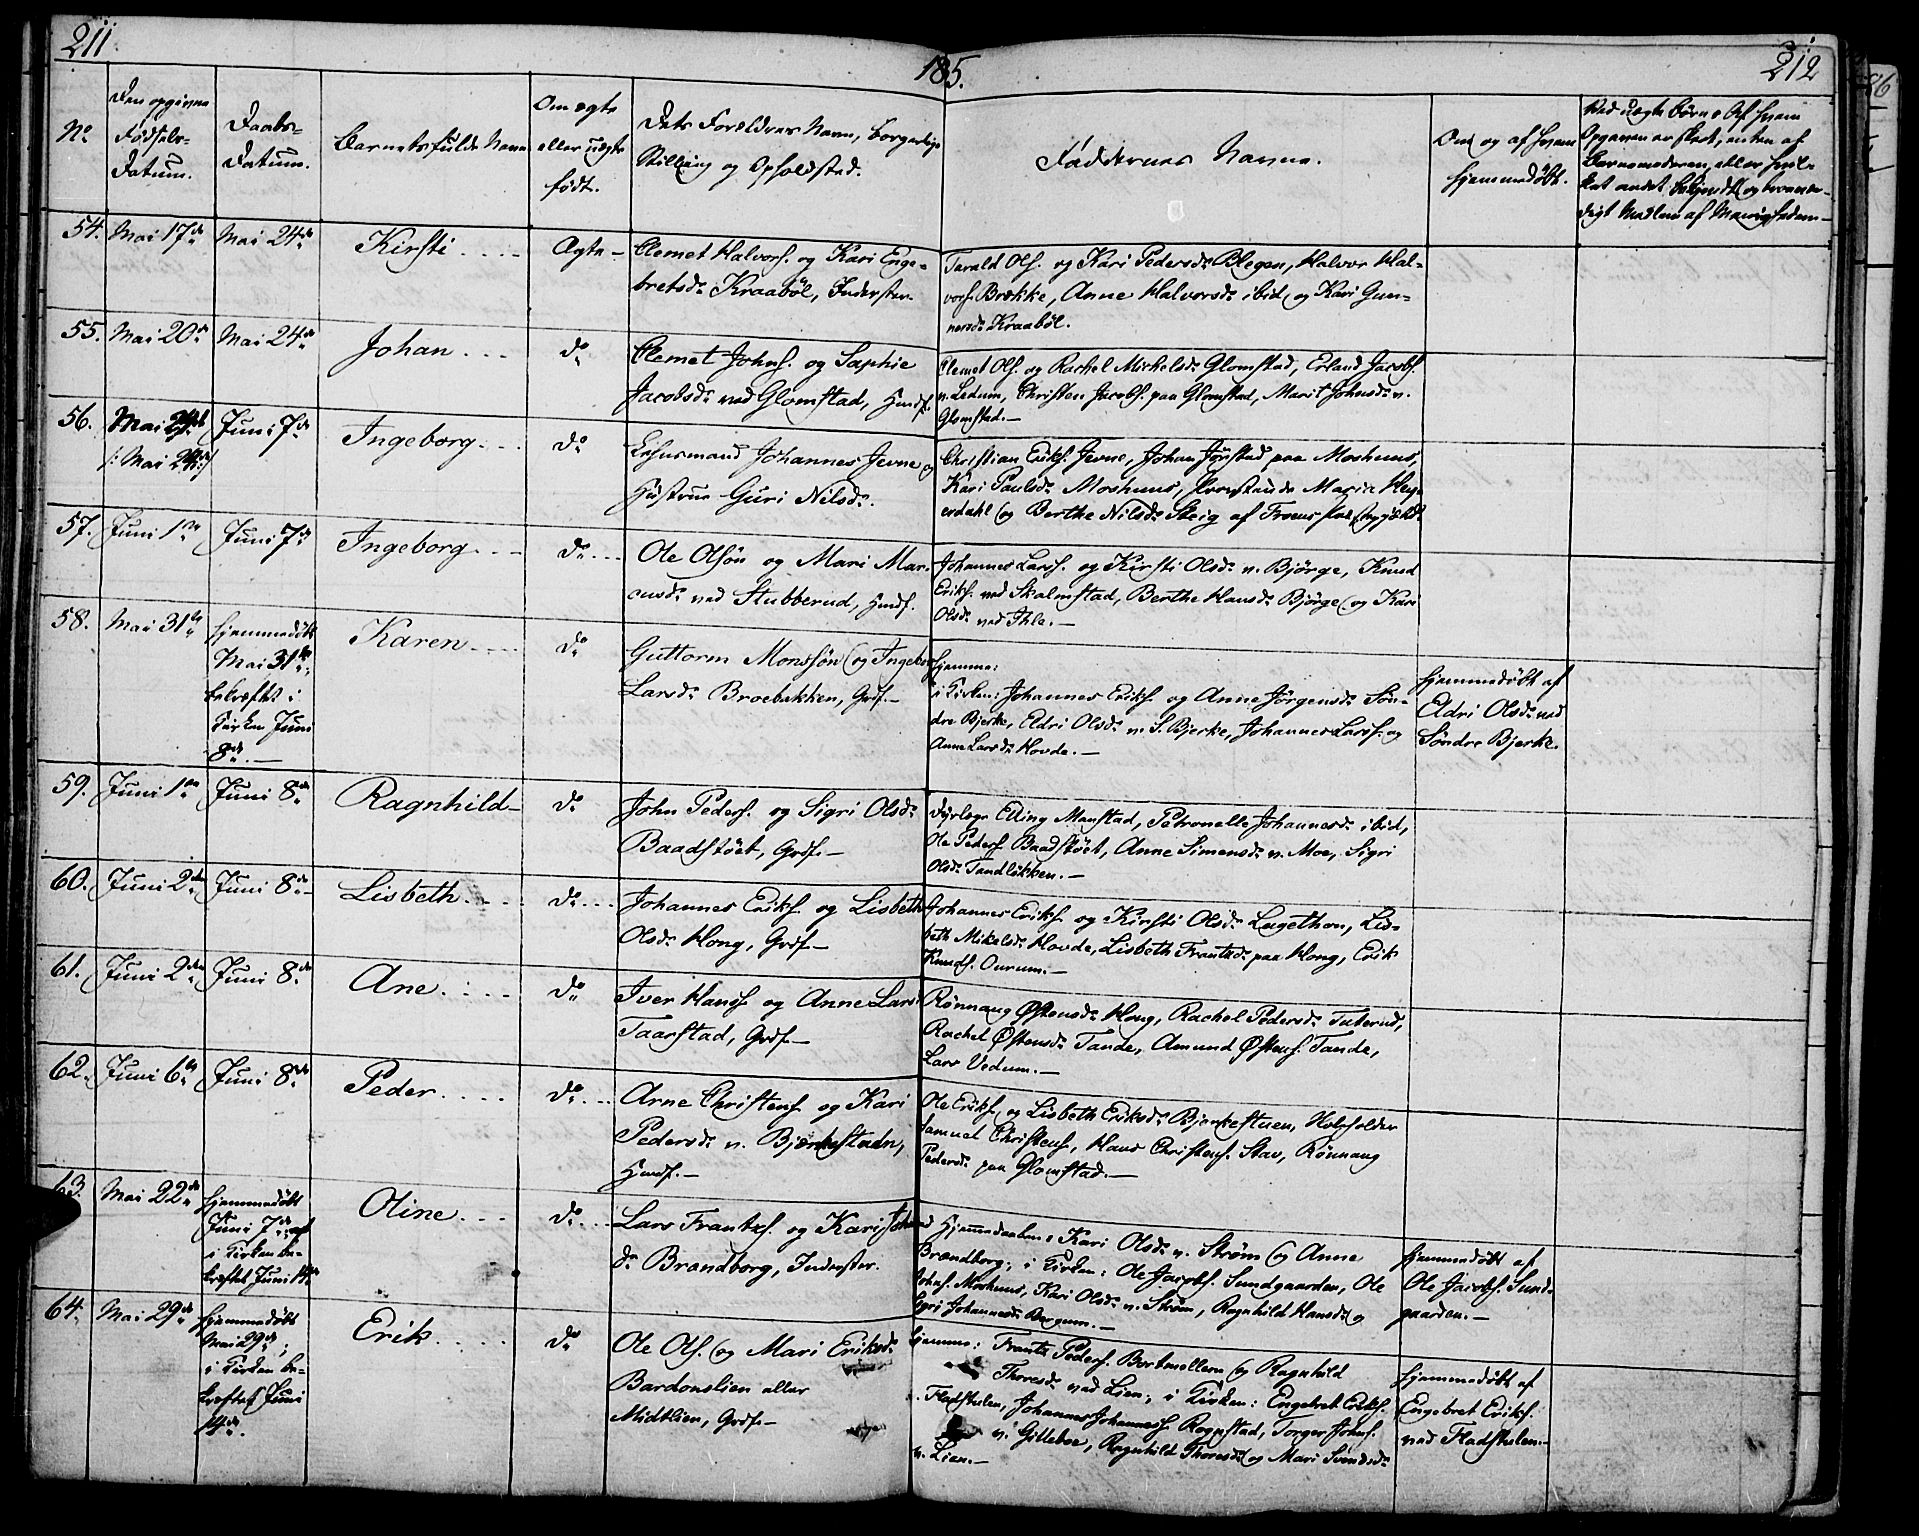 211
185.
212
No
Den opgivne
Fødsels-
Datum.
Daabs-
Datum.
Barnets fulde Navn
Om ægte
eller uægte
født.
Dets Forældres Navn, borgerlige
Stilling og Opholdsted.
Faddernes Navne.
Om og af hvem
hjemmedöbt.
Ved uægte Börn: Af hvem
Opgaven er skeet, enten af
Barnemoderen, eller hvil-
ket andet bekjendt og troevær-
digt Medlem af Menigheden
54.
Mai 17de
Mai 24de
Kirsti
Ægte
Clemet Halvors. og Kari Enge-
bretsdr Kraaböl, Inderster
Tarald Ols. og Kari Pedersdr Blegen, Halvor Hal-
vors. Brække, Anne Halvorsdr ibid og Kari Gun-
nersdr Kraaböl.
55.
Mai 20de
Mai 24de
Johan
do
Clemet Johns. og Sophie
Jacobsdr ved Glomstad, Husf.
Clemet Ols. og Rachel Mickelsdr Glomstad, Erland Jacobs.
v. Ledum, Christen Jacobs. paa Glomstad, Marit Johnsdr v.
Glomstad.
56.
Mai
/: Mai 24de :/
Juni 7de
Ingeborg
do
Lehnsmand Johannes Jevne og
Hustrue Guri Nilsdr.
Christian Eriks. Jevne, Johan Jörstad paa Moshuus,
Kari Paulsdr Moshuus, Maria Hei-
erdahl og Berthe Nilsdr Steig af Froens
57.
Juni 1ste
Juni 7de
Ingeborg
do
Ole Olsön og Mari Mar-
cusdr ved Stubberud, Husf.
Johannes Lars. og Kirsti Olsdr v. Björge, Knud
Eriks. ved Skalmstad, Berthe Hansdr Björge og Kari
Olsdr ved Ihle.
58.
Mai 31te
hjemmedöbt
Mai 31te
bekræftet i
Kirken Juni
8de.
Karen
do
Guttorm Monssön og Ingeborg
Larsdr Broebakken, Grdf.
hjemme:
i Kirken: Johannes Eriks. og Anne Jörgensdr Sön-
dre Bjerke, Eldri Olsdr v. S. Bjerke, Johannes Lars. og
Anne Larsdr Hovde.
hjemmedöbt af
Eldri Olsdr ved
Söndre Bjerke.
59.
Juni 1ste
Juni 8de
Ragnhild
do
John Peders. og Sigri Olsdr
Baadstöet, Grdf.
Dyrlæge Elling Manstad, Petronelle Johannesdr ibid,
Ole Peders. Baadstöet, Anne Simensdr v. Moe, Sigri
Olsdr Tandlökken.
60.
Juni 2den
Juni 8de
Lisbeth
do
Johannes Eriks. og Lisbeth
Olsdr Hong, Grdf.
Johannes Eriks. og Kirsti Olsdr Lugethon, Lis-
beth Mikelsdr Hovde, Lisbeth Frantsdr paa Hong, Erik
Knuds. Onrum.
61.
Juni 2den
Juni 8de
Ane
do
Iver Hans. og Anne Lars
Taarstad, Grdf.
Rönnaug Østensdr Hong, Rachel Pedersdr Tuterud,
Rachel Østensdr Tande, Amund Østens. Tande,
Lars Vedum.
62.
Juni 6te
Juni 8de
Peder
do
Arne Christens. og Kari
Pedersdr v. Bjerkestuen,
Husf.
Ole Eriks. og Lisbeth Eriksdr Bjerkestuen,
Samuel Christens., Hans Christens. Stav, Rönnaug
Pedersdr paa Glomstad.
63.
Mai 22de
hjemmedöbt
Juni 7de og
i Kirken be-
kræftet Juni 14de
Oline
do
Lars Frants. og Kari Johans
dr Brandborg, Inderster.
Ved Hjemmedaaben: Kari Olsdr v. Ström og Anne
Brandborg; i Kirken: Ole Jacobs. Sundgaarden, Ole
Johns. Moshuus, Kari Olsdr v. Ström, Ragnhild Hansdr og
Sigri Johannesdr Bergum.
hjemmedöbt af
Ole Jacobs. Sund-
gaarden.
64.
Mai 29de
hjemmedöbt
Mai 29de;
i Kirken be-
kræftet Juni
14de.
Erik
do
Ole Ols. og Mari Eriksdr
Bardonslien eller
Midtlien, Grdf.
hjemme: Frants Peders. Bortmellem og Ragnhild
Thoresdr ved Lien; i Kirken: Engebret Eriks.
v. Fladstulen, Johannes Johannes. Rognstad, Torger Johns.
v. Gilleboe, Ragnhild Thoresdr og Mari Svendsdr
v. Lien.
hjemmedöbt af
Engebret Eriks.
ved Fladstulen.
86